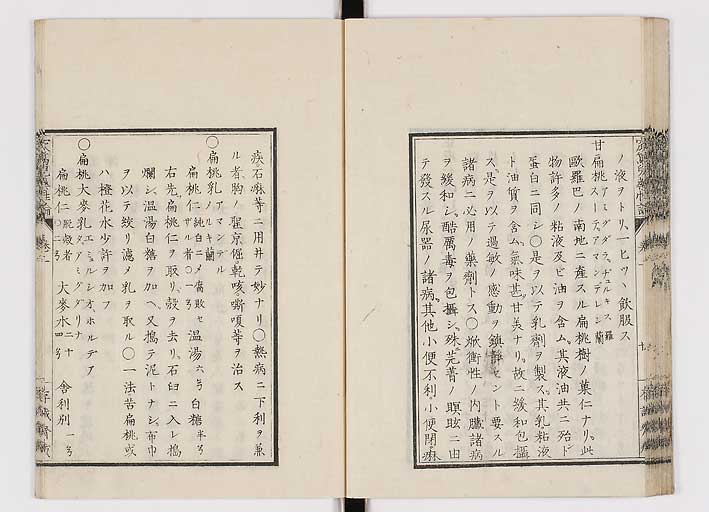 ノ液ヲトリ、一ヒツヽ飲服ス
甘扁桃 アミグダラ、ヂュルキス 羅 スーテ、アマンデレン 蘭
歐羅巴ノ南地ニ産スル扁桃樹ノ菓仁ナリ。此
物許多ノ粘液及ビ油ヲ含ム。其液油共ニ殆ド
蛋白ニ同シ○是ヲ以テ乳劑ヲ製ス。其乳粘液
ト油質ヲ含ム。氣味甚。甘美ナリ。故ニ緩和包攝
ス是ヲ以テ過敏ノ感動ヲ鎮靜セント要スル
諸病ニ必用ノ藥劑トス○焮衝性ノ内臟諸病
ヲ緩和シ、酷厲毒ヲ包攝シ、殊芫菁ノ瞑眩ニ由
テ發スル尿器ノ諸病、其他小便不利小便閉淋
疾石麻等ニ用井テ妙ナリ○熱病ニ下利ヲ兼
ル者、胸ノ掀衝乾咳嘶嗄等ヲ治ス
○扁桃乳 アマンデルメルキ 蘭
扁桃仁 純白ニ〆腐敗セザル者 ○一ヲ 温湯 六ヲ 白糖 半ヲ
右先扁桃仁ヲ取リ、殻ヲ去リ、石臼ニ入レ搗
爛シ、温湯白糖ヲ加ヘ、又搗テ泥トナシ、布巾
ヲ以テ絞リ濾メ乳ヲ取ル○一法苦扁桃或
ハ橙花水少許ヲ加フ
○扁桃大麥乳 エミュルシオ、ホルデアタ、アミグダリナ
扁桃仁 脱殻者 ○二ヲ 大麥水 二十四ヲ 舎利別 一ヲ